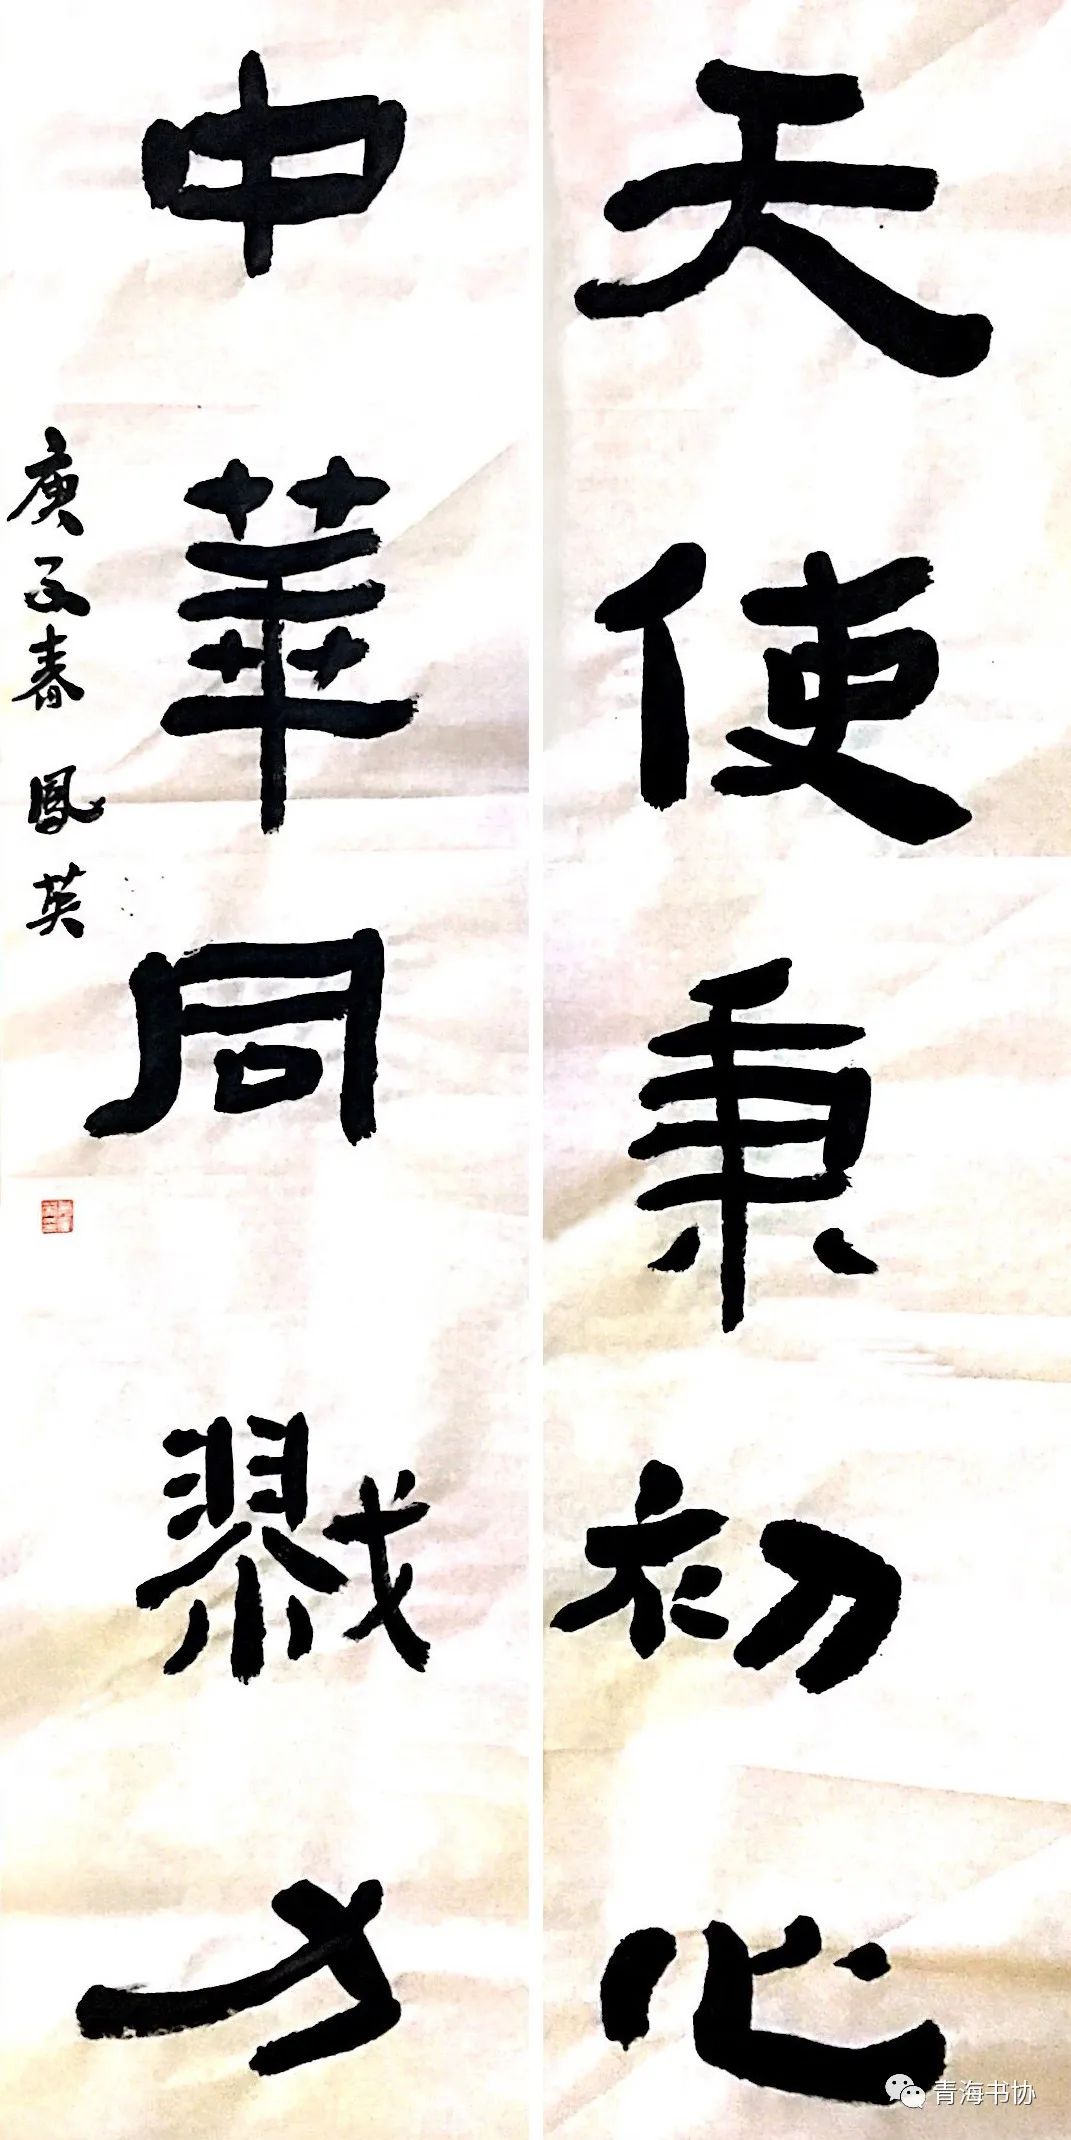 天使秉初心
中華同戮力
庚子春 鳳英
青海书协